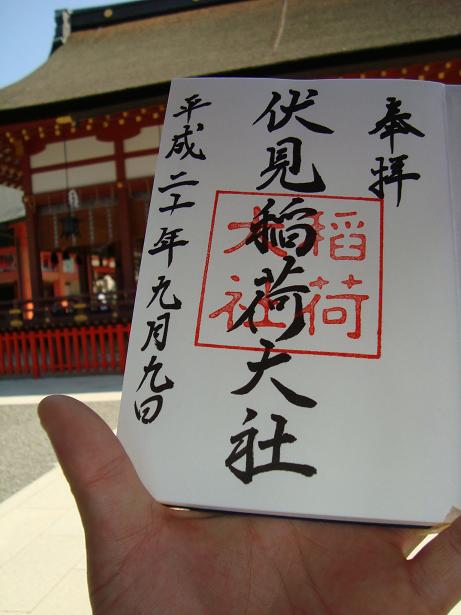 奉拝
伏見稲荷大社
稲荷
大社
平成二十年九月九日